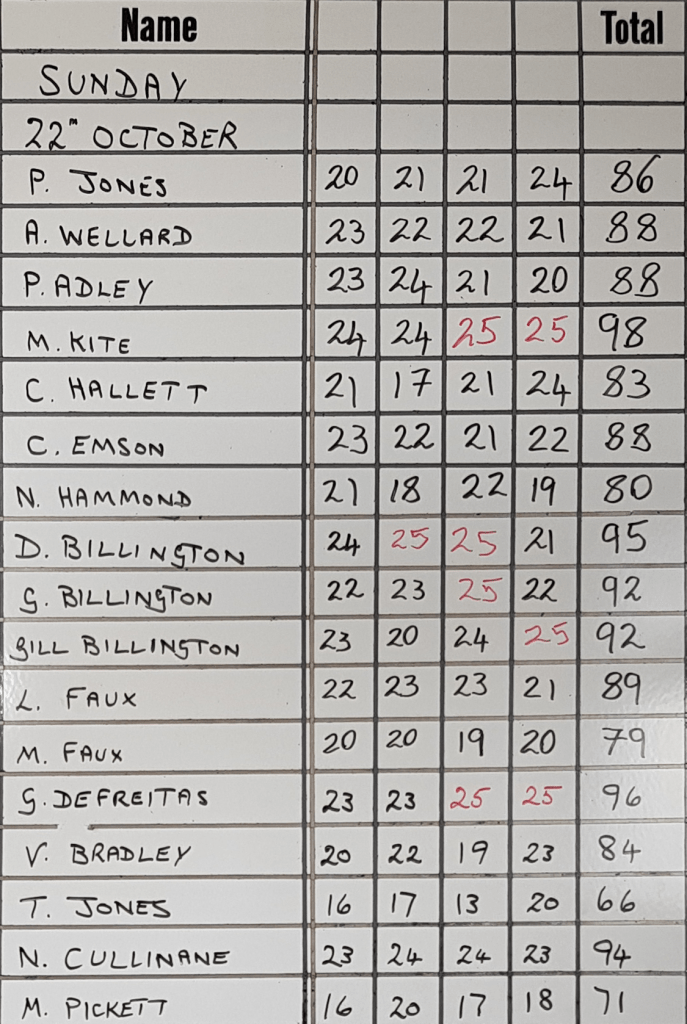 Name Total
SUNDAY
22" OCTOBER
P. JONES 20 21 21 24 86
A. WELLARD 23 22 22 21 88
P. ADLEY 23 24 21 20 88
M. KITE 24 24 25 25 98
C. HALLETT 21 17 21 24 83
C. EMSON 23 22 21 22 88
N. HAMMOND 21 18 22 19 80
D. BILLINGTON 24 25 25 21 95
G. BILLINGTON 22 23 25 22 92
GILL BILLINGTON 23 20 24 25 92
L. FAUX 22 23 23 21 89
M. FAUX 20 20 19 20 79
G. DEFREITAS 23 23 25 25 96
V. BRADLEY 20 22 19 23 84
T. JONES 16 17 13 20 66
N. CULLINANE 23 24 24 23 94
M. PICKETT 16 20 17 18 71